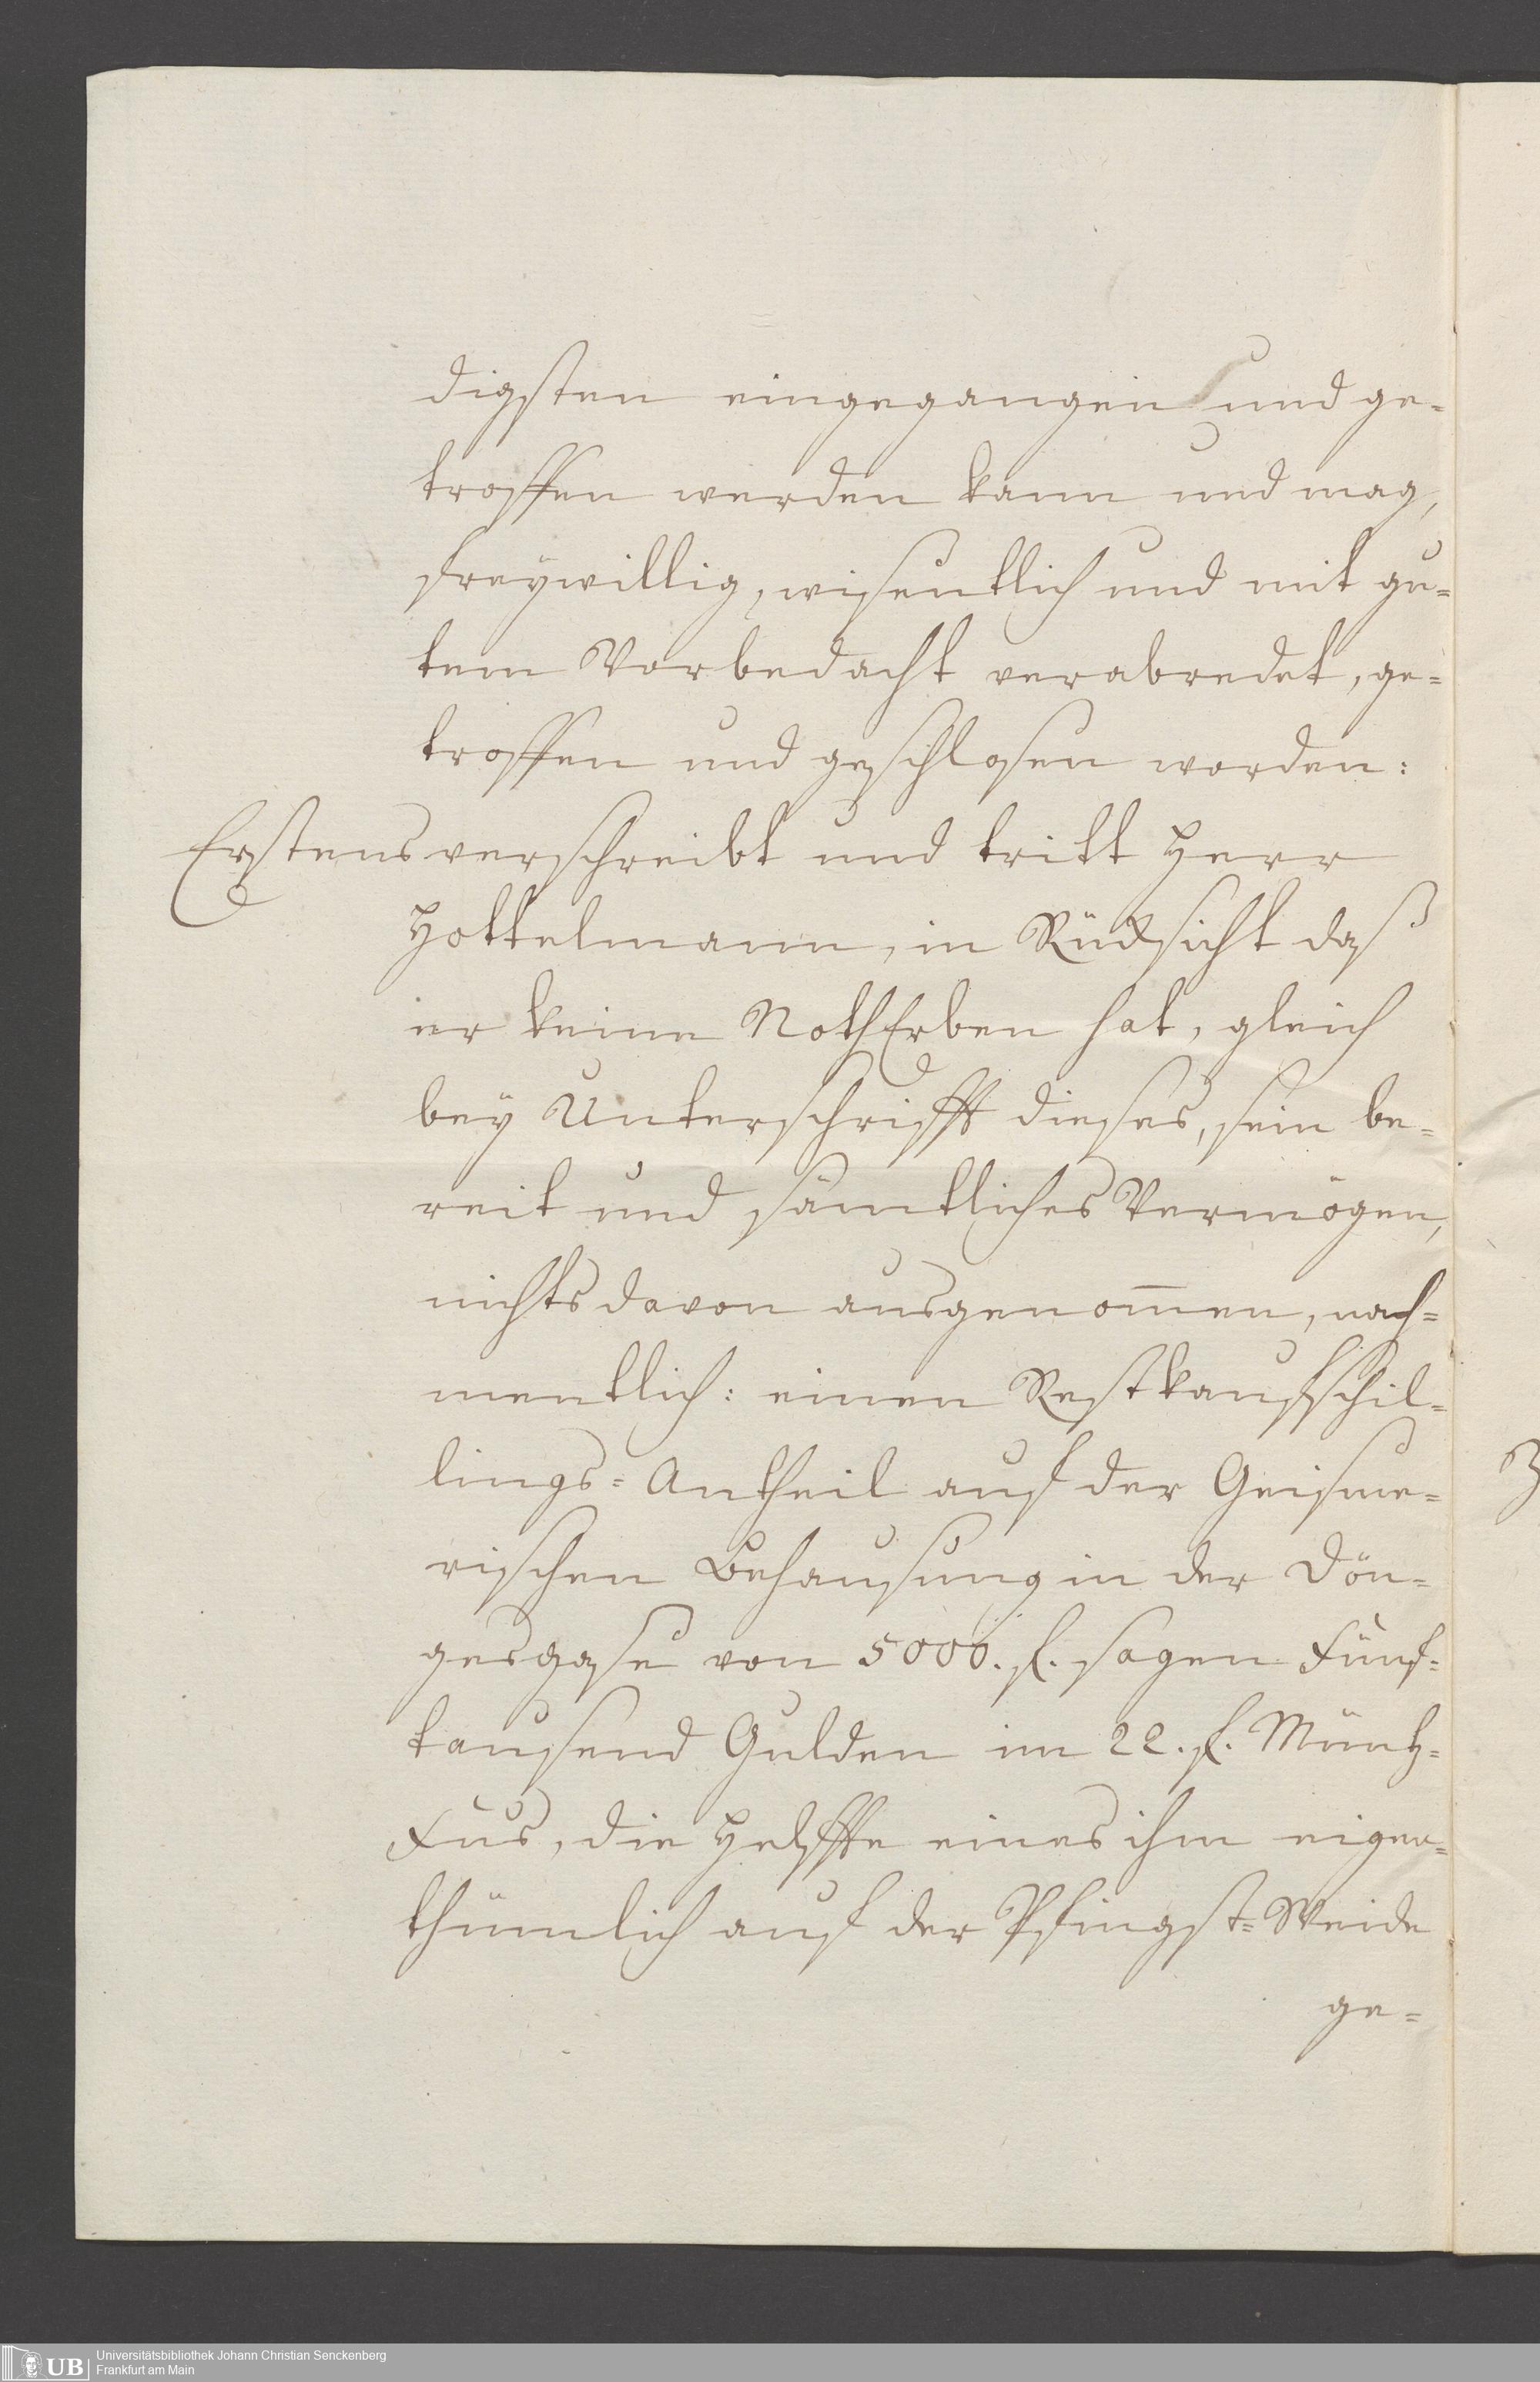 digsten eingegangen und ge-
troffen werden kann und mag,
freywillig, wisentlich und mit gu-
tem Vorbedacht verabredet, ge-
troffen und geschlosen worden:
Erstens verschreibt und tritt Herr
Hottelmann, in Rücksicht daß
er keine NothErben hat, gleich
bey Unterschrifft dieses, sein be-
reit und sämtliches Vermögen,
nichts davon ausgenom̄en, nah-
mentlich: einen Restkaufschil-
lings-Antheil auf der Geisme-
rischen Behausung in der Dön-
gesgase von 5000. f. sagen Fünf-
tausend Gulden im 22. f. Müntz-
Fus, die Helffte eines ihm eigen-
thümlich auf der Pfingst-Weide
ge-
Universitätsbibliothek Johann Christian Senckenberg
Frankfurt am Main
UB